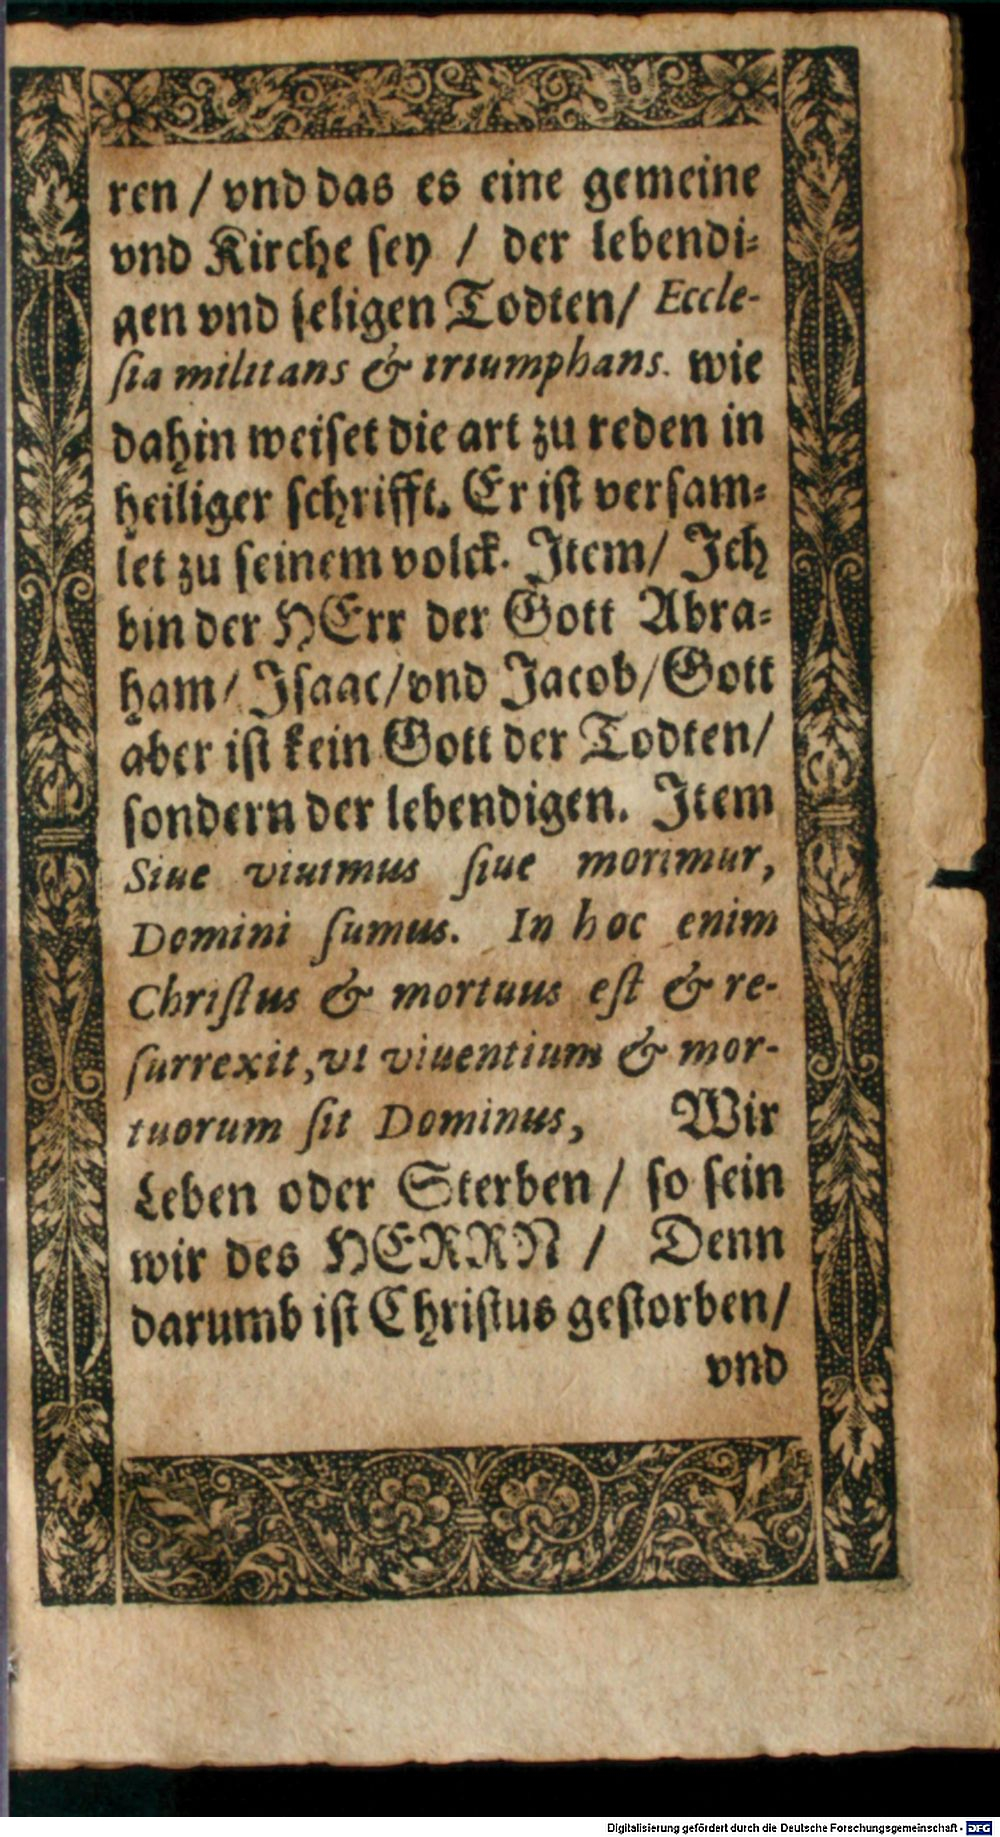 ren / vnd das es eine gemeine
vnd Kirche ſey / der lebendi⸗
gen vnd ſeligen Todten / Eccle-
ſia militans & triumphans. wie
dahin weiſet die art zu reden in
heiliger ſchrifft. Er iſt verſam⸗
let zu ſeinem volck. Item / Ich
bin der HErr der Gott Abra⸗
ham / Iſaac / vnd Jacob / Gott
aber iſt kein Gott der Todten /
ſondern der lebendigen. Item
Siue viuimus ſiue morimur,
Domini ſumus. In hoc enim
Chriſtus & mortuus eſt & re-
ſurrexit, vt viuentium & mor-
tuorum ſit Dominus, Wir
Leben oder Sterben / ſo ſein
wir des HERRN / Denn
darumb iſt Chriſtus geſtorben /
vnd
Digitalisierung gefördert durch die Deutsche Forschungsgemeinschaft - DFG